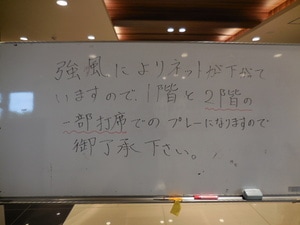 強風によりネットが下がって
いますので、1階と2階の
一部打席でのプレーになりますので
御了承下さい。